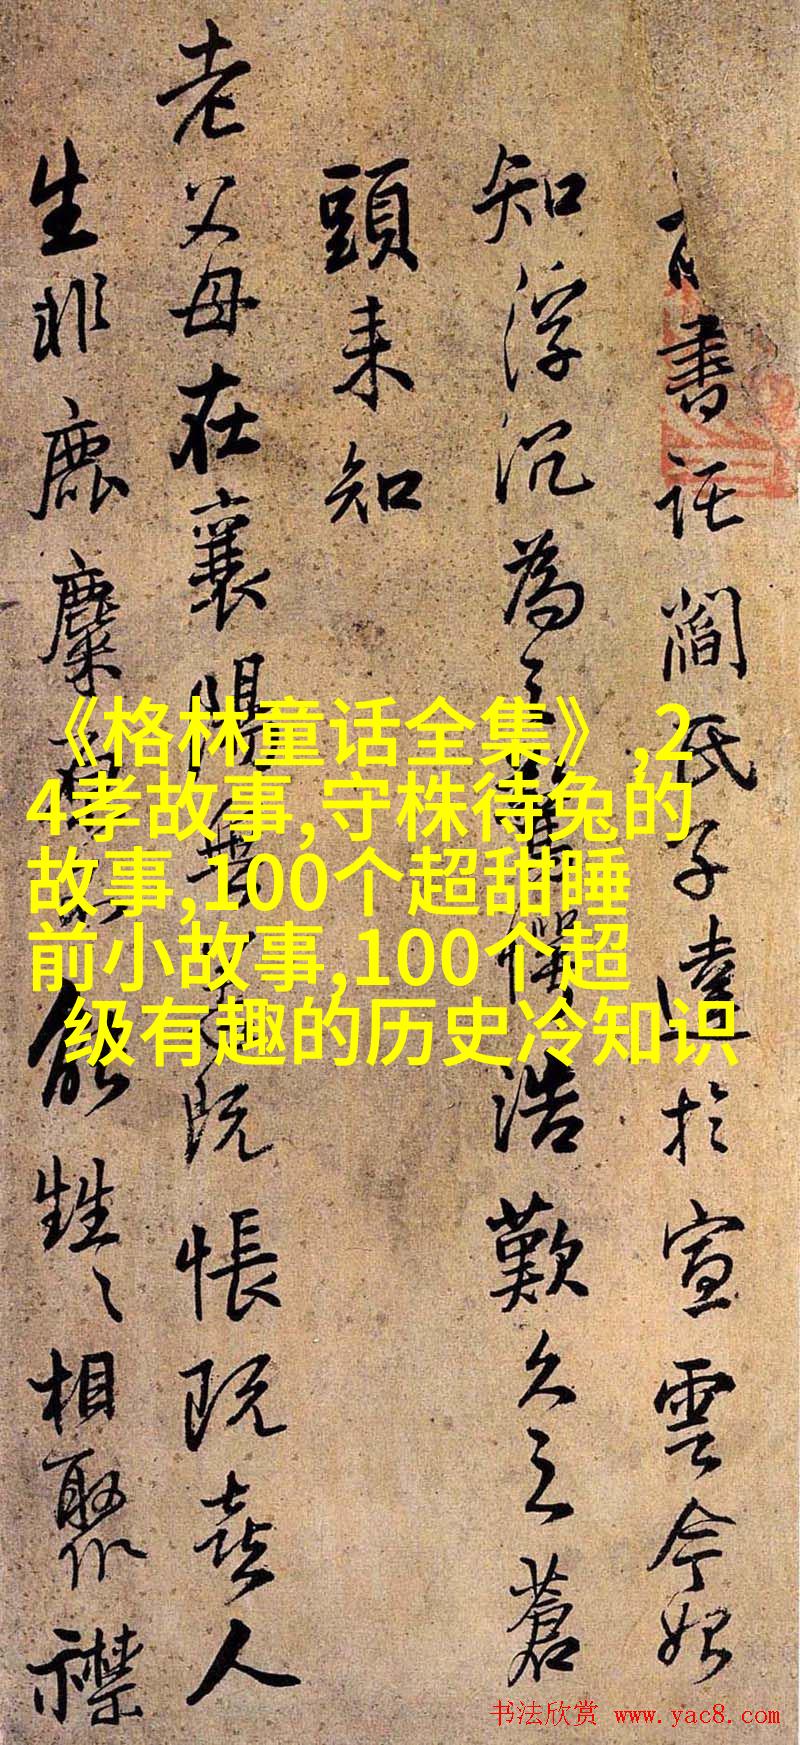 書託閻氏子達於宣雲今始
知浮沉為
浩歎久之蒼
頭未知
老父母在襄陽無
既悵既喜人
生非鹿麋
能甡〻相聚襟
《格林童话全集》,2
4孝故事,守株待兔的
故事,100个超甜睡
前小故事,100个超
级有趣的历史冷知识
书法欣赏 www.yac8.com